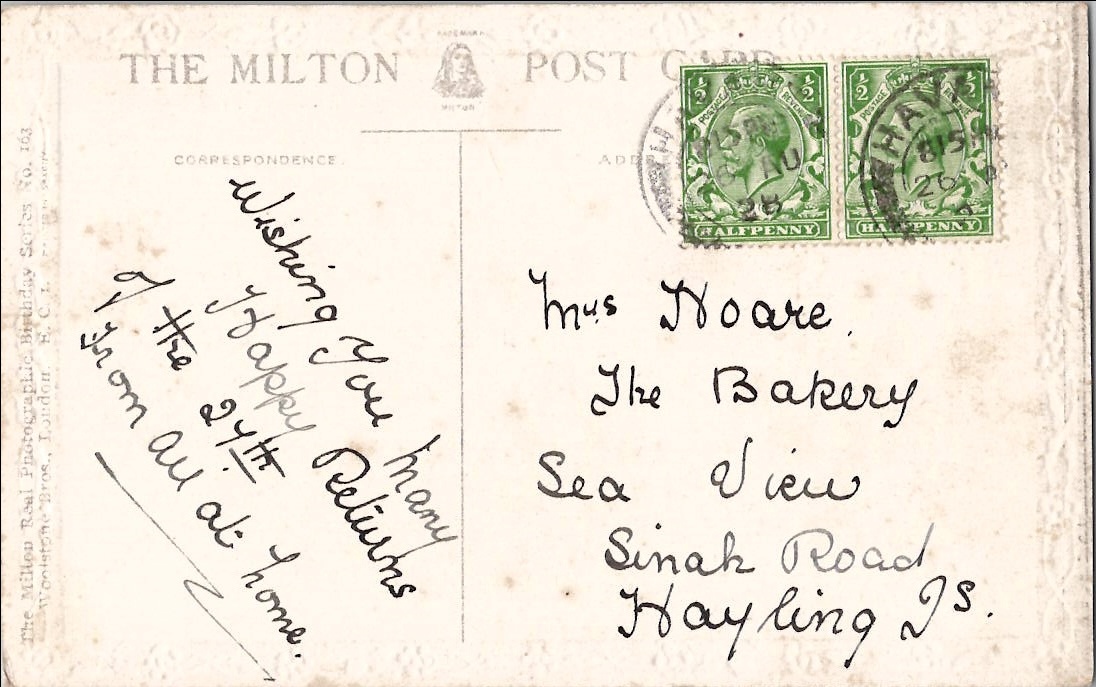 THE MILTON POST CARD
TRADE MARK
MILTON
CORRESPONDENCE.
½ ½
POSTAGE REVENUE
HALFPENNY
½ ½
POSTAGE REVENUE
HALFPENNY
815 PM
AU
26
HAVA
815 PM
26
Wishing You Many
Happy Returns
of the 27th
From All at home.
Mrs Hoare.
The Bakery
Sea View
Sinah Road
Hayling Is.
The Milton Real Photographic Birthday Series No. 163
Woolstone Bros., London, E.C.1.